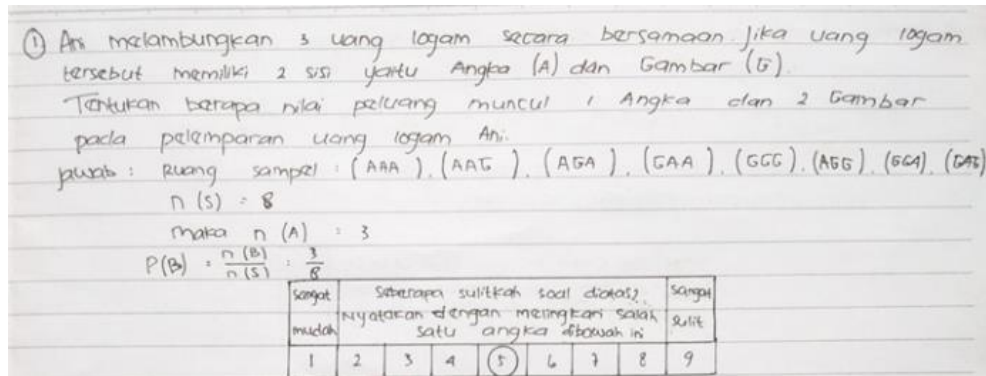 ① Ani melambungkan 3 uang logam secara bersamaan. Jika uang logam
tersebut memiliki 2 sisi yaitu Angka (A) dan Gambar (G).
Tentukan berapa nilai peluang muncul 1 Angka dan 2 Gambar
pada pelemparan uang logam Ani.
Jawab : Ruang sampel : (AAA), (AAG), (AGA), (GAA), (GGG), (AGG), (GGA), (GAG)
n (S) = 8
maka n (A) = 3
P(B) = n (B) / n (S) = 3 / 8
Sangat mudah
Seberapa sulitkah soal diatas?
Nyatakan dengan melingkari salah
satu angka dibawah ini
Sangat sulit
1 2 3 4 5 6 7 8 9